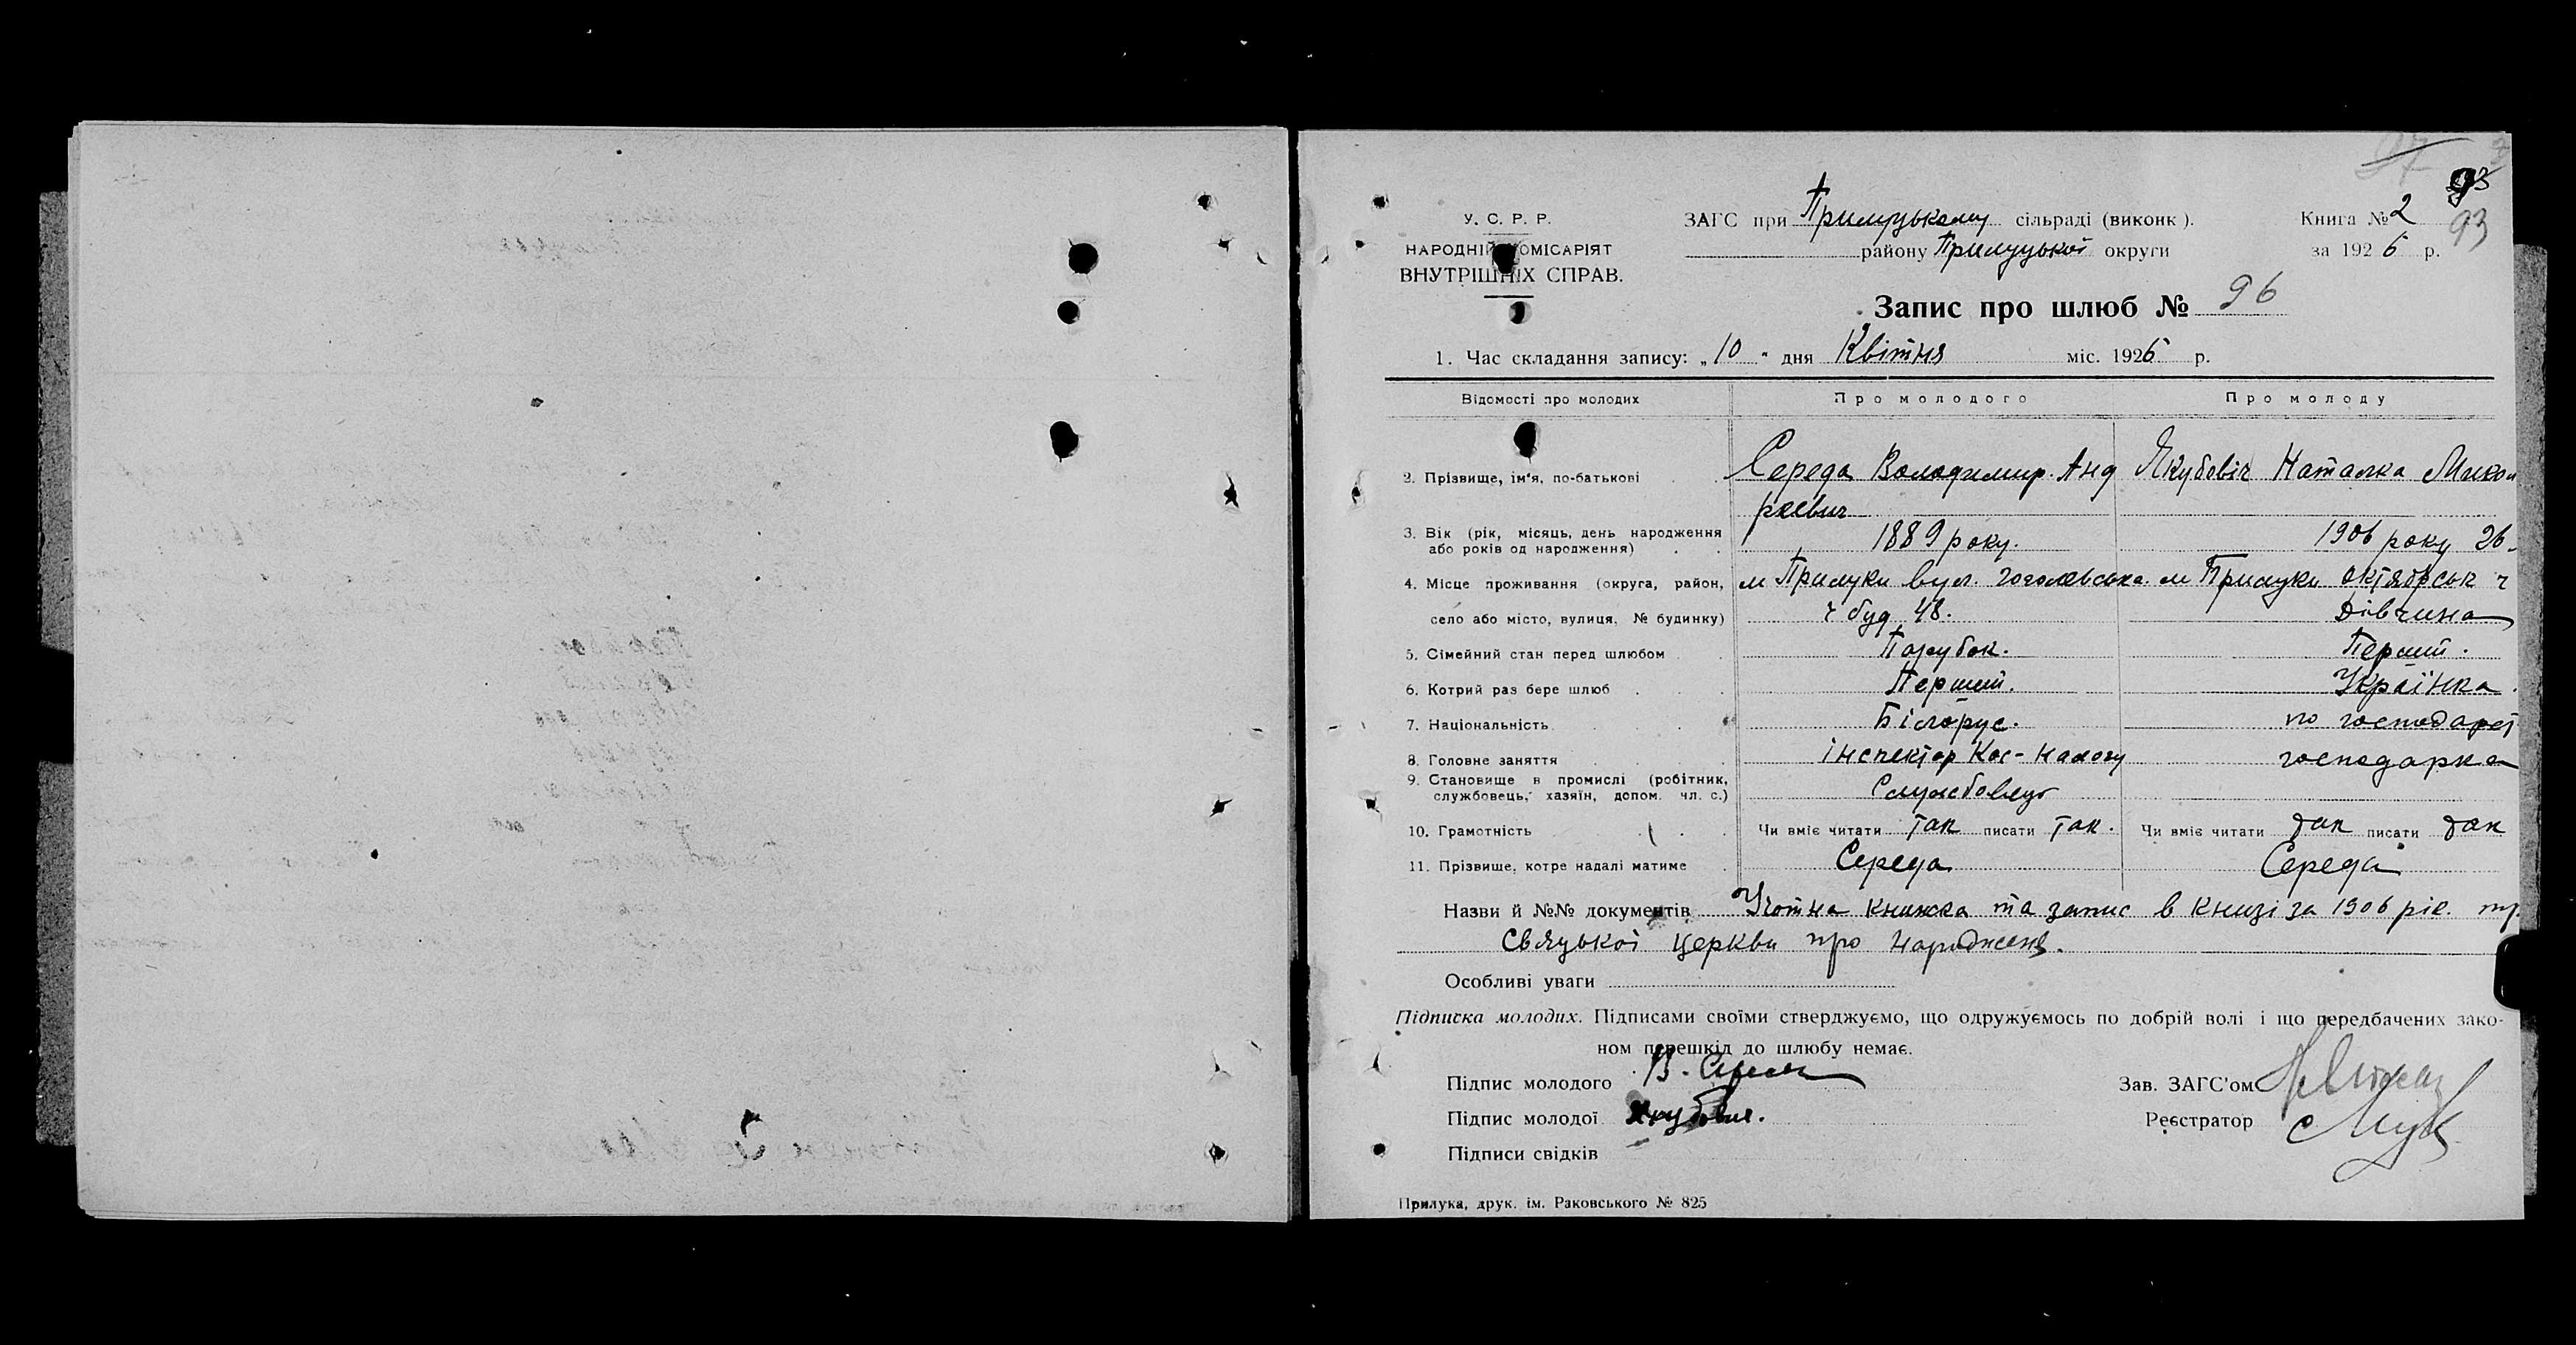 93
У. С. Р. Р.
НАРОДНІЙ КОМІСАРІЯТ
ВНУТРІШНІХ СПРАВ.
ЗАГС при Прилуцькому сільраді (виконк).
району Прилуцької округи
Книга № 2
93
за 1926 р.
Запис про шлюб № 96
1. Час складання запису: „10" дня Квітня міс. 1926 р.
Відомості про молодих Про молодого Про молоду
2. Прізвище, ім'я, по-батькові Середа Володимир Анд Якубовіч Наталка Микол
реевич
3. Вік (рік, місяць, день народження
або років од народження) 1889 року. 1906 року 26
4. Місце проживання (округа, район, м Прилуки вул. гоголевська м Прилуки октябрськ ч
село або місто, вулиця, № будинку) ч буд 48. дівчина
5. Сімейний стан перед шлюбом Парубок. Перший.
6. Котрий раз бере шлюб Перший. Українка.
7. Національність Білорус. по господарст
8. Головне заняття інспектор Кос-налогу господарка
9. Становище в промислі (робітник,
службовець, хазяїн, допом. чл. с.) Службовець
10. Грамотність Чи вміє читати так писати так. Чи вміє читати так писати так
11. Прізвище, котре надалі матиме Середа Середа
Назви й №№ документів Учотна книжка та запис в книзі за 1906 рік.
церкви про народженя.
Особливі уваги
Підписка молодих. Підписами своїми стверджуємо, що одружуємось по добрій волі і що передбачених зако-
ном перешкід до шлюбу немає.
Підпис молодого В. Середа
Зав. ЗАГС'ом
Підпис молодої Якубович.
Реєстратор
Підписи свідків
Прилука, друк. ім. Раковського № 825